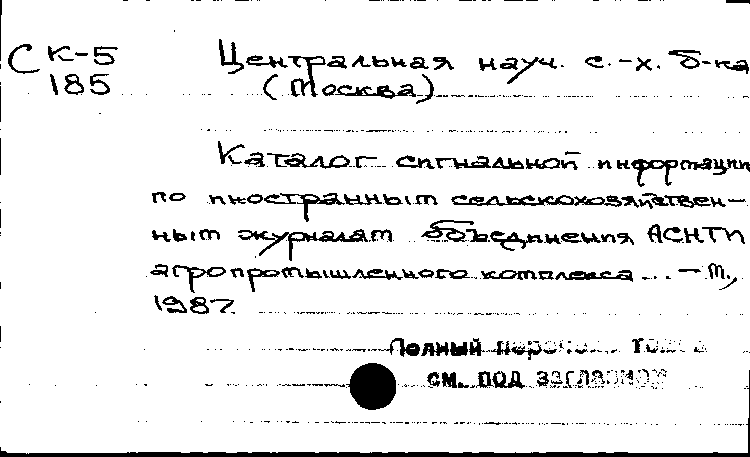 С К-5 Центральная науч. с.-х. б-ка
185 (Москва)
Каталог сигнальной информации
по иностранным сельскохозяйствен-
ным журналам Объединения АСНТИ
агропромышленного комплекса... - М.,
1987.
Полный перечень томов
см. под заглавием